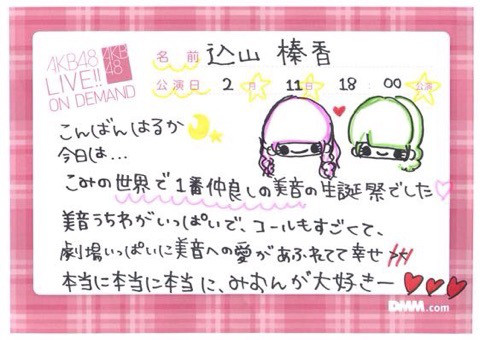 AKB48
LIVE!!
ON DEMAND
AKB
48
名前 込山 榛香
公演日 2月 11日 18:00 公演
こんばんはるか
今日は...
こみの世界で1番仲良しの美音の生誕祭でした
美音うちわがいっぱいで、コールもすごくて、
劇場いっぱいに美音への愛があふれてて幸せ><
本当に本当に本当に、みおんが大好きー
DMM.com